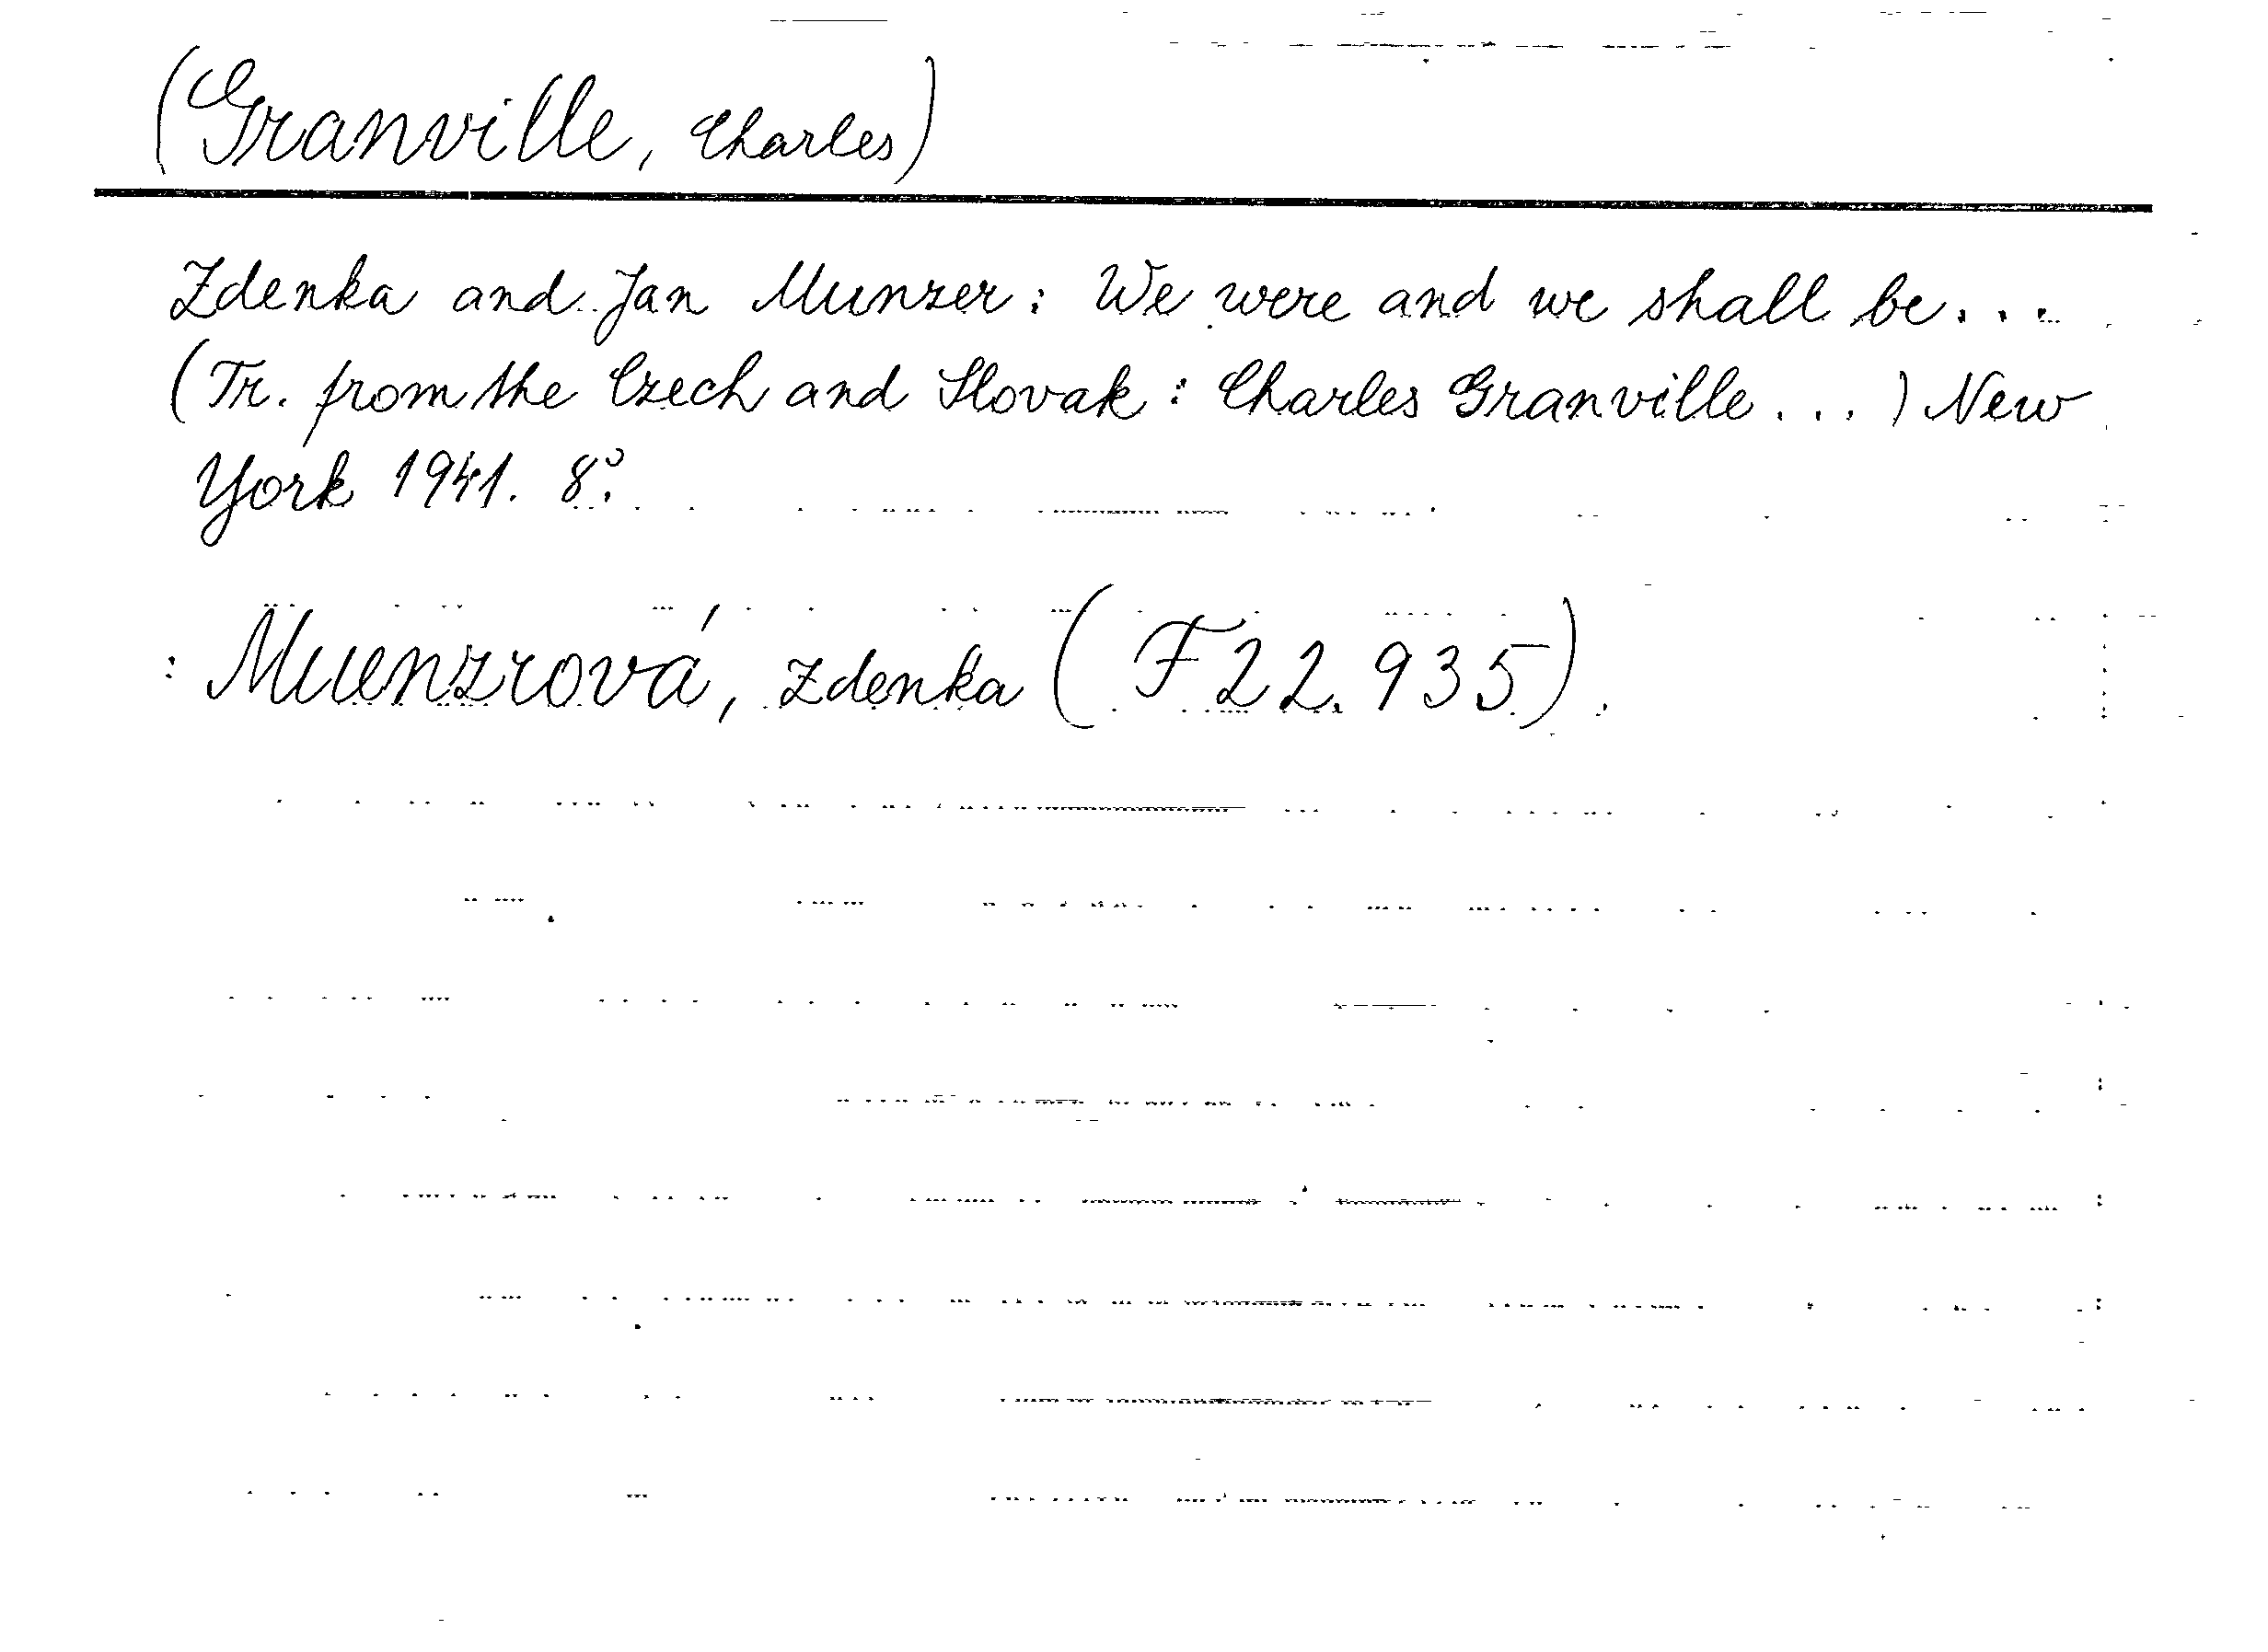 (Granville, Charles)
Zdenka and Jan Munzer: We were and we shall be...
(Tr. from the Czech and Slovak: Charles Granville...) New
York 1941. 8°.
: Muenzrová, Zdenka (F 22.935).